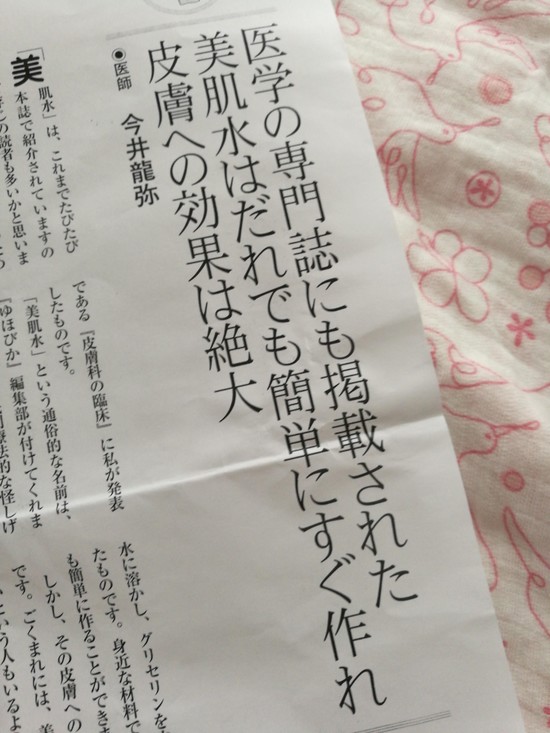 医学の専門誌にも掲載された
美肌水はだれでも簡単にすぐ作れ
皮膚への効果は絶大
◉医師 今井龍弥
「美肌水」は、これまでたびたび
本誌で紹介されていますの
読者も多いかと思いま
である『皮膚科の臨床』に私が発表
したものです。
「美肌水」という通俗的な名前は、
『ゆほびか』編集部が付けてくれま
療法的な怪しげ
水に溶かし、グリセリンを
たものです。身近な材料で
も簡単に作ることができま
しかし、その皮膚への
です。ごくまれには、美
という人もいるよ